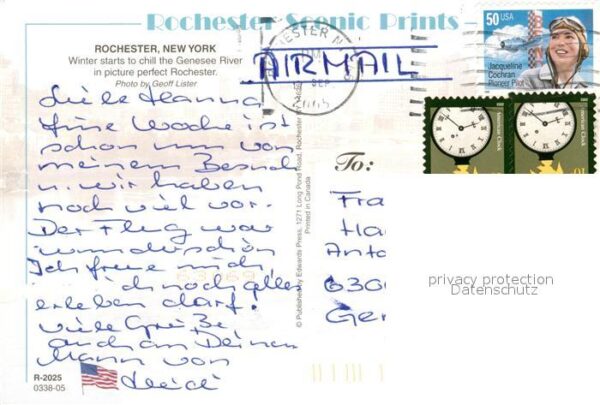 Rochester Scenic Prints
ROCHESTER, NEW YORK
Winter starts to chill the Genesee River
in picture perfect Rochester.
Photo by Geoff Lister
AIRMAIL
50 USA
Jacqueline
Cochran
Pioneer Pilot
American Clock
American Clock
Liebe Hanna
Eine Woche ist
schon um von
meinem Besuch
u. wir haben
noch viel vor.
Der Flug war
wunderschön
Ich freue mich
ich noch alles
erleben darf!
Viele Grüße
auch an Deinen
Mann von
Heidi
To:
Fra
Ha
Anto
630
Ger
privacy protection
Datenschutz
© Published by Edwards Press, 1271 Long Pond Road, Rochester NY
Printed in Canada
R-2025
0338-05